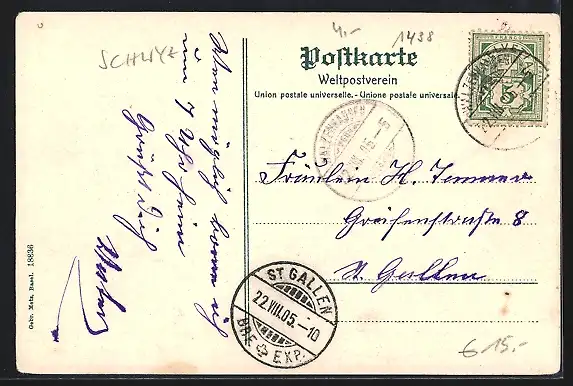 SCHWYZ
4.-
1438
Postkarte
Weltpostverein
Union postale universelle. - Unione postale universale.
HELVETIA
FRANCO
5
Wenn möglich komm ich
um 7 Uhr heim
Grüßt Dich
Fräulein H.
Greifenstraße 8
St. Gallen
ST GALLEN
22.VIII.05.-10
BRF EXP.
6 15.-
Gebr. Metz, Basel. 18836